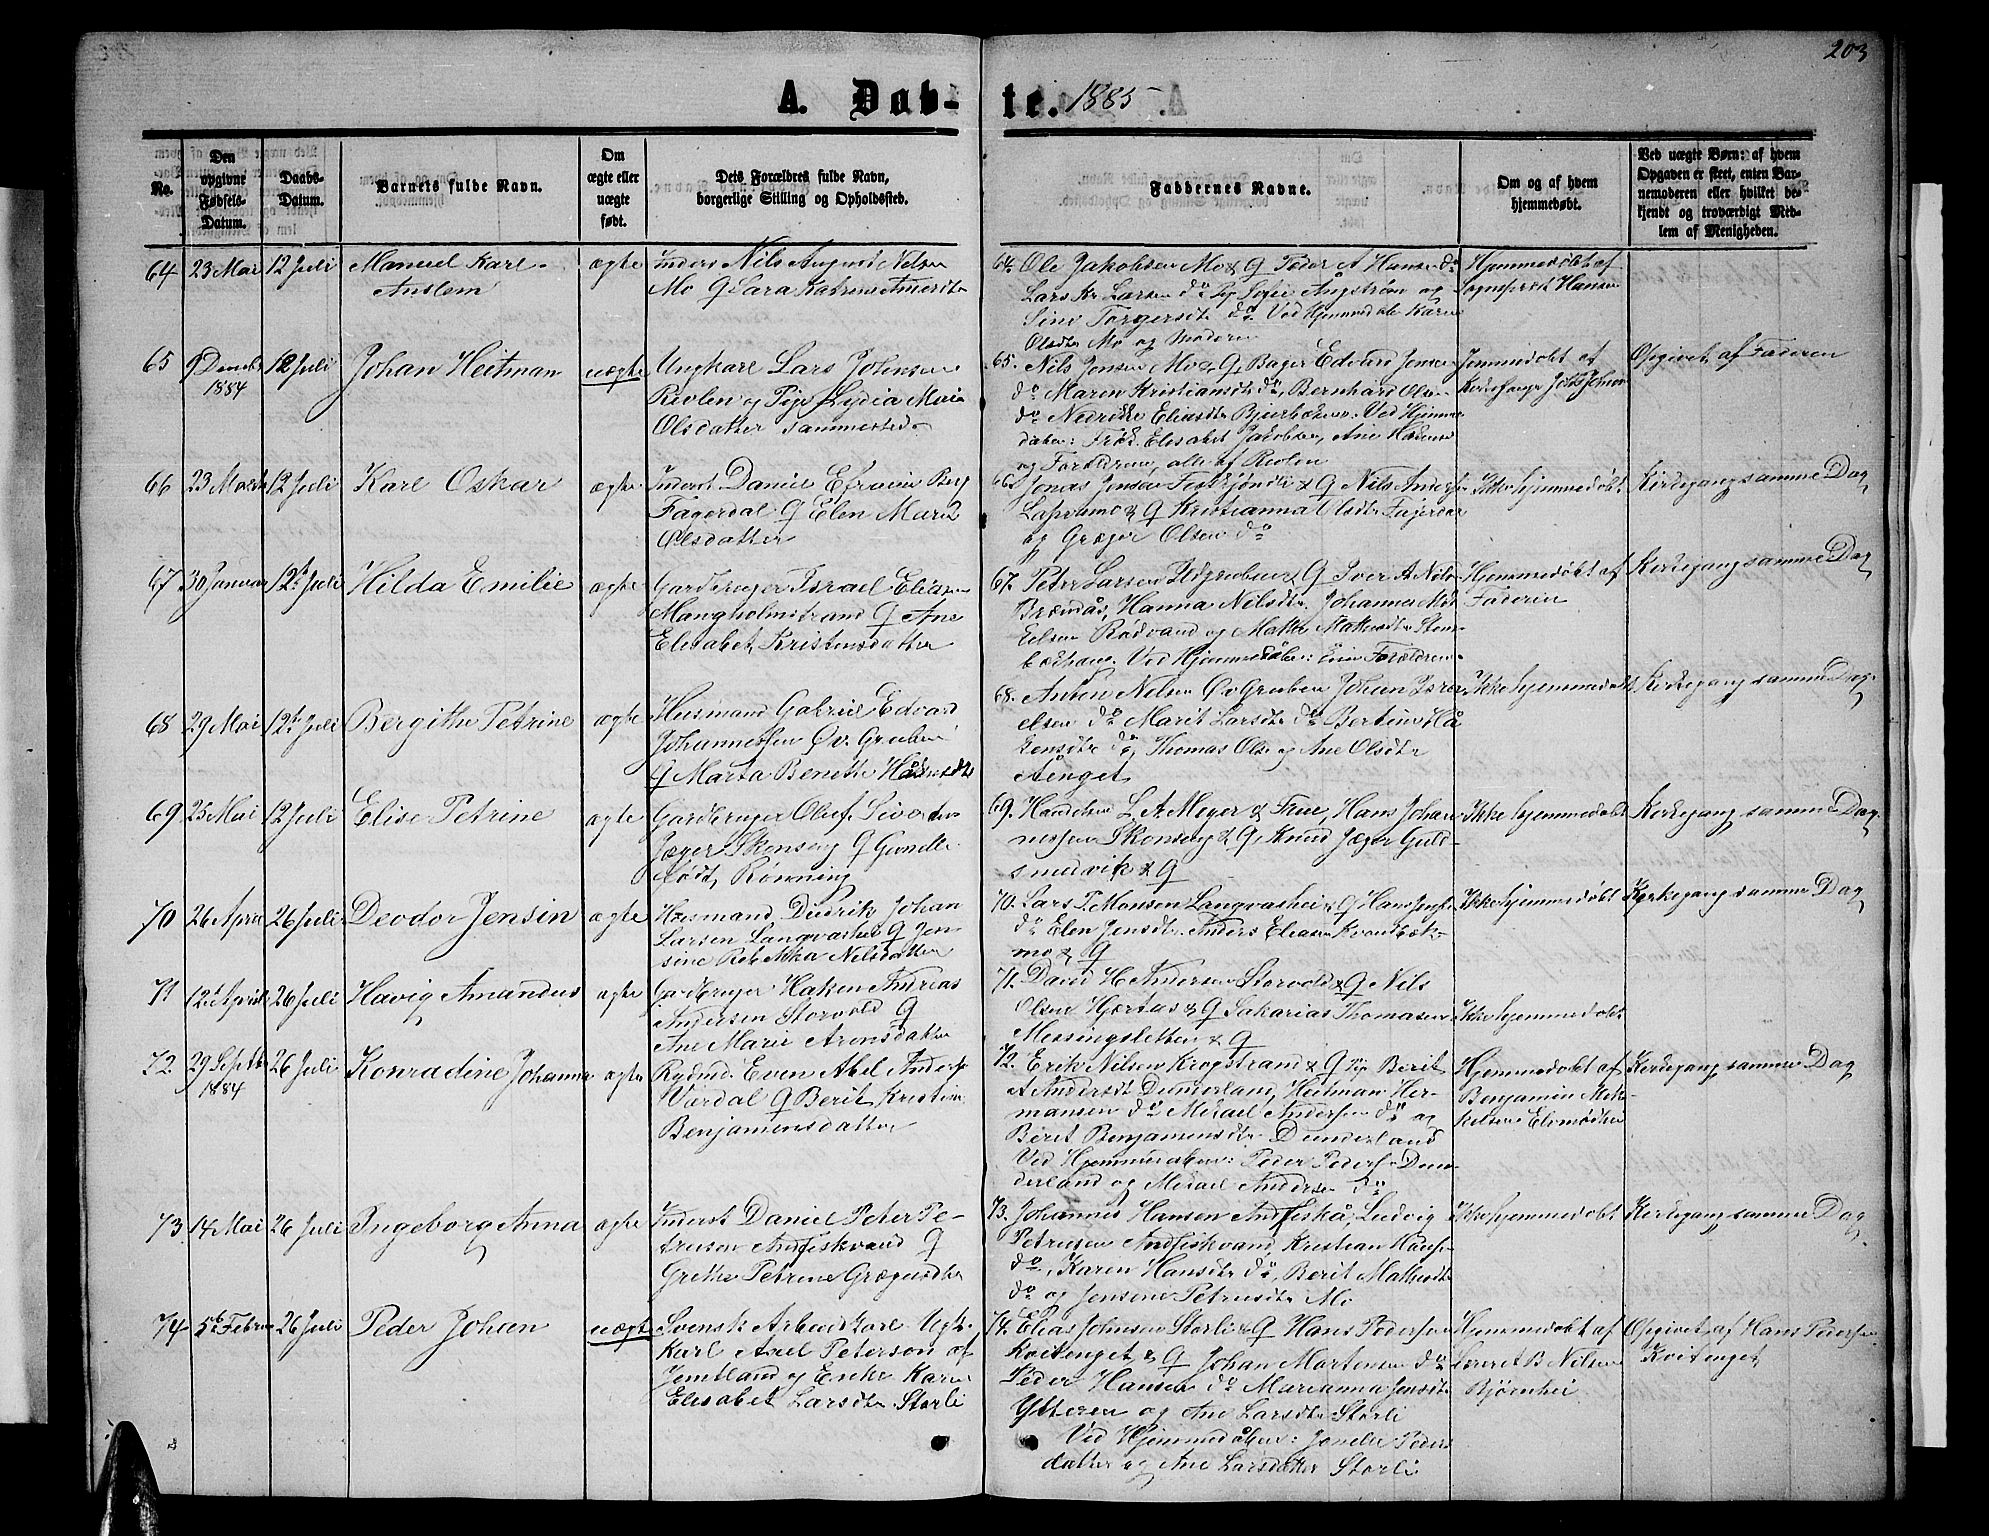 203
A. Døb-te. 1885
No.
Den opgivne Fødsels-Datum.
Daabs-Datum.
Barnets fulde Navn.
Om ægte eller uægte født.
Dets Forældres fulde Navn, borgerlige Stilling og Opholdssted.
Faddernes Navne.
Om og af hvem hjemmedøbt.
Ved uægte Børn: af hvem Opgaven er skeet, enten Barnemoderen eller hvilket bekjendt og troværdigt Medlem af Menigheden.
64 23 Mai 12 Juli Manuel Karl
Anslem
ægte
Inderst Nils August Nilsen
Mo & Sara
64. Ole Jakobsen Mo & Q Peder A Hansen do
Lars Kr Larsen do Pige Sofie Angstrøm og
Sine Torgersdt do. Ved Hjemmedåb: Karen
Olsdtr Mo og Moderen
Hjemmedøbt af
Sogneprest Hansen
65 9 Decmbr 1884 12 Juli Johan Heitman
uægte
Ungkarl Lars Johnsen
Revlen og Pige Lydia Marie
Olsdatter sammesteds
65. Nils Jensen Mo & Q, Bager Edvard Jensen
do Maren Kristiansdtr do, Bernhard Olsen
do Elisabet Jakobsen, Ane
og Forældrene, alle af Revlen
Hjemmedøbt af
Opgivet af Faderen
66 23 Marts 12 Juli Karl Oskar
ægte
Inderst Daniel Efraim Berg
Fagerdal & Elen Marie
Olsdatter
66. Jonas Jensen & Q Nils Anders
& Q Kristianna Olsdtr Fagerdal
og Græger Olsen do
Ikke hjemmedøbt
Kirkegang samme Dag
67 30 Januar 12te Juli Hilda Emilie
ægte
Gardbruger Israel Eliasen
Mangholmstrand & Ane
Elisabet Kristensdatter
67. Peter Larsen & Q Iver A Nilsen
Brændås, Hanna Nilsdtr Johannes
Rødvand og
Ved Hjemmedåben: Forældrene
Hjemmedøbt af
Faderen
Kirkegang samme Dag
68 29 Mai 12te Juli Bergithe Petrine
ægte
Husmand Gabriel Edvard
Johannessen Øv. Gruben
& Marta Benette
68. Anton Nilsen Øv Gruben, Johan Isra-
elsen do Marit Larsdtr do Bertine Hå
kensdtr do, Thomas Olsen og Ane Olsdtr
Aenget
Ikke hjemmedøbt
Kirkegang samme Dag
69 25 Mai 12 Juli Elise Petrine
ægte
Gardbruger Oluf Sivertsen
Jæger Skonseng & Gunelle
født Rønning
69. Handelsm L. A. Meyer & Frue, Hans Johan
nessen Skonseng & Q, Knud Jæger Guld-
smedvik & Q
Ikke hjemmedøbt
Kirkegang samme Dag
70 26 April 26 Juli Deodor Jensin
ægte
Husmand Didrik Johan
Larsen Langvashei & Jen-
sine Rebekka Nilsdatter
70. Lars P. Monsen Langvashei & Q Hans Jens
do Elen Jensdtr, Anders Eliasen Kvandbæk-
mo & Q
Ikke hjemmedøbt
Kirkegang samme Dag
71 12t April 26 Juli Havig Amandus
ægte
Gardbruger Haken Andrias
Andersen Storvold &
Ane Maria Aronsdatter
71. David H Andersen Storvold & Q Nils
Olsen Hjertås & Q Sakarias Thomasen
Messingsletten & Q
Ikke hjemmedøbt
72 29 Septbr 1884 26 Juli Konradine Johanna
ægte
Rydmd. Even Abel Anders
Virdal & Berit Kristine
Benjaminsdatter
72. Erik Nilsen Krogstrand & Q Pig Berit
A Andersdt Dunderland, Heitman Her-
mansen do Mikael Andersen do og
Beret Benjaminsdtr Dunderland
Ved Hjemmedåben: Peder Peders Dun-
derland og Mikael Andersen do
Hjemmedøbt af
Benjamin Mik-
kelsen
Kirkegang samme Dag
73 14 Mai 26 Juli Ingeborg Anna
ægte
Inderst Daniel Peter Pe-
trusen Andfiskvand &
Grethe Petrine Grægersdtr
73. Johannes Hansen Andfiskå, Ludvig
Petrusen Andfiskvand, Kristian Hans
do, Karen Hansdtr do, Berit
do og Jensine Petrusdtr Mo
Ikke hjemmedøbt
Kirkegang samme Dag
74 5te Februar 26 Juli Peder Johan
uægte
Svensk Arbeidskarl Ugk.
Karl Axel Peterson af
Jemtland og Enke Karen
Elisabet Larsdtr Storli
74. Elias Johnsen Storli & Q Hans Pedersen
Kvitenget & Q Johan Mortensen do
Peder Hansen do Marianna Jensdtr
Ytteren og Ane Larsdtr Storli
Ved Hjemmedåben: Peders
datter og Ane Larsdatter Storli
Hjemmedøbt af
Læreret B Nilsen
Bjørnhei
Opgivet af Hans Pedersen
Kvitenget